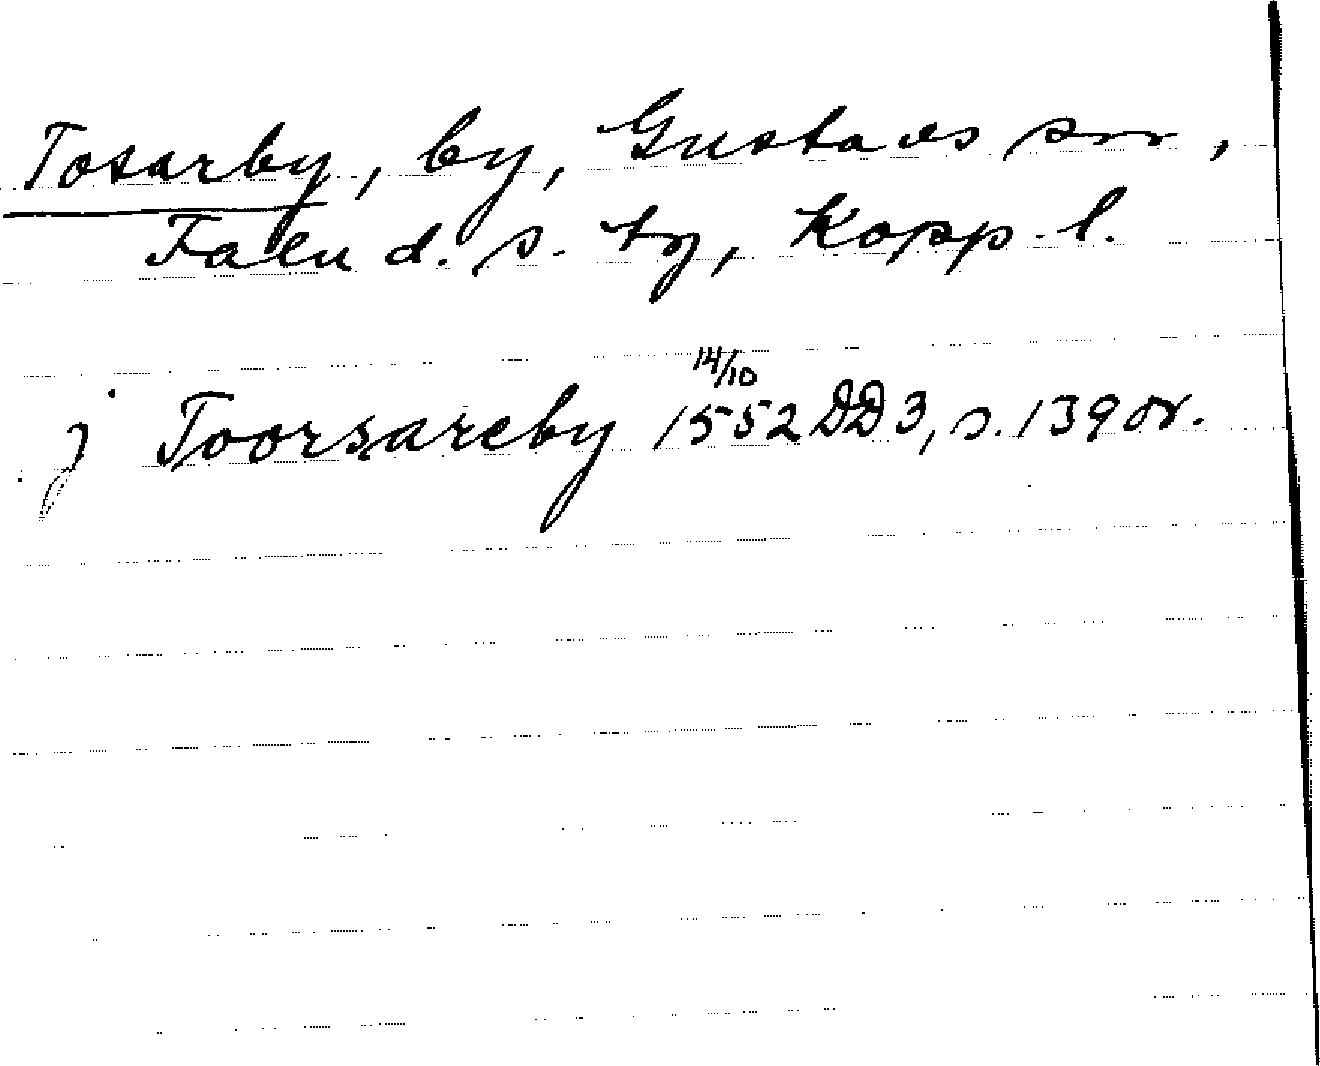 Tosarby, by, Gustavs sn,
Falu d. s. tg, Kopp. l.
j Toorsareby 14/10 1552 DD 3, s. 139 or.